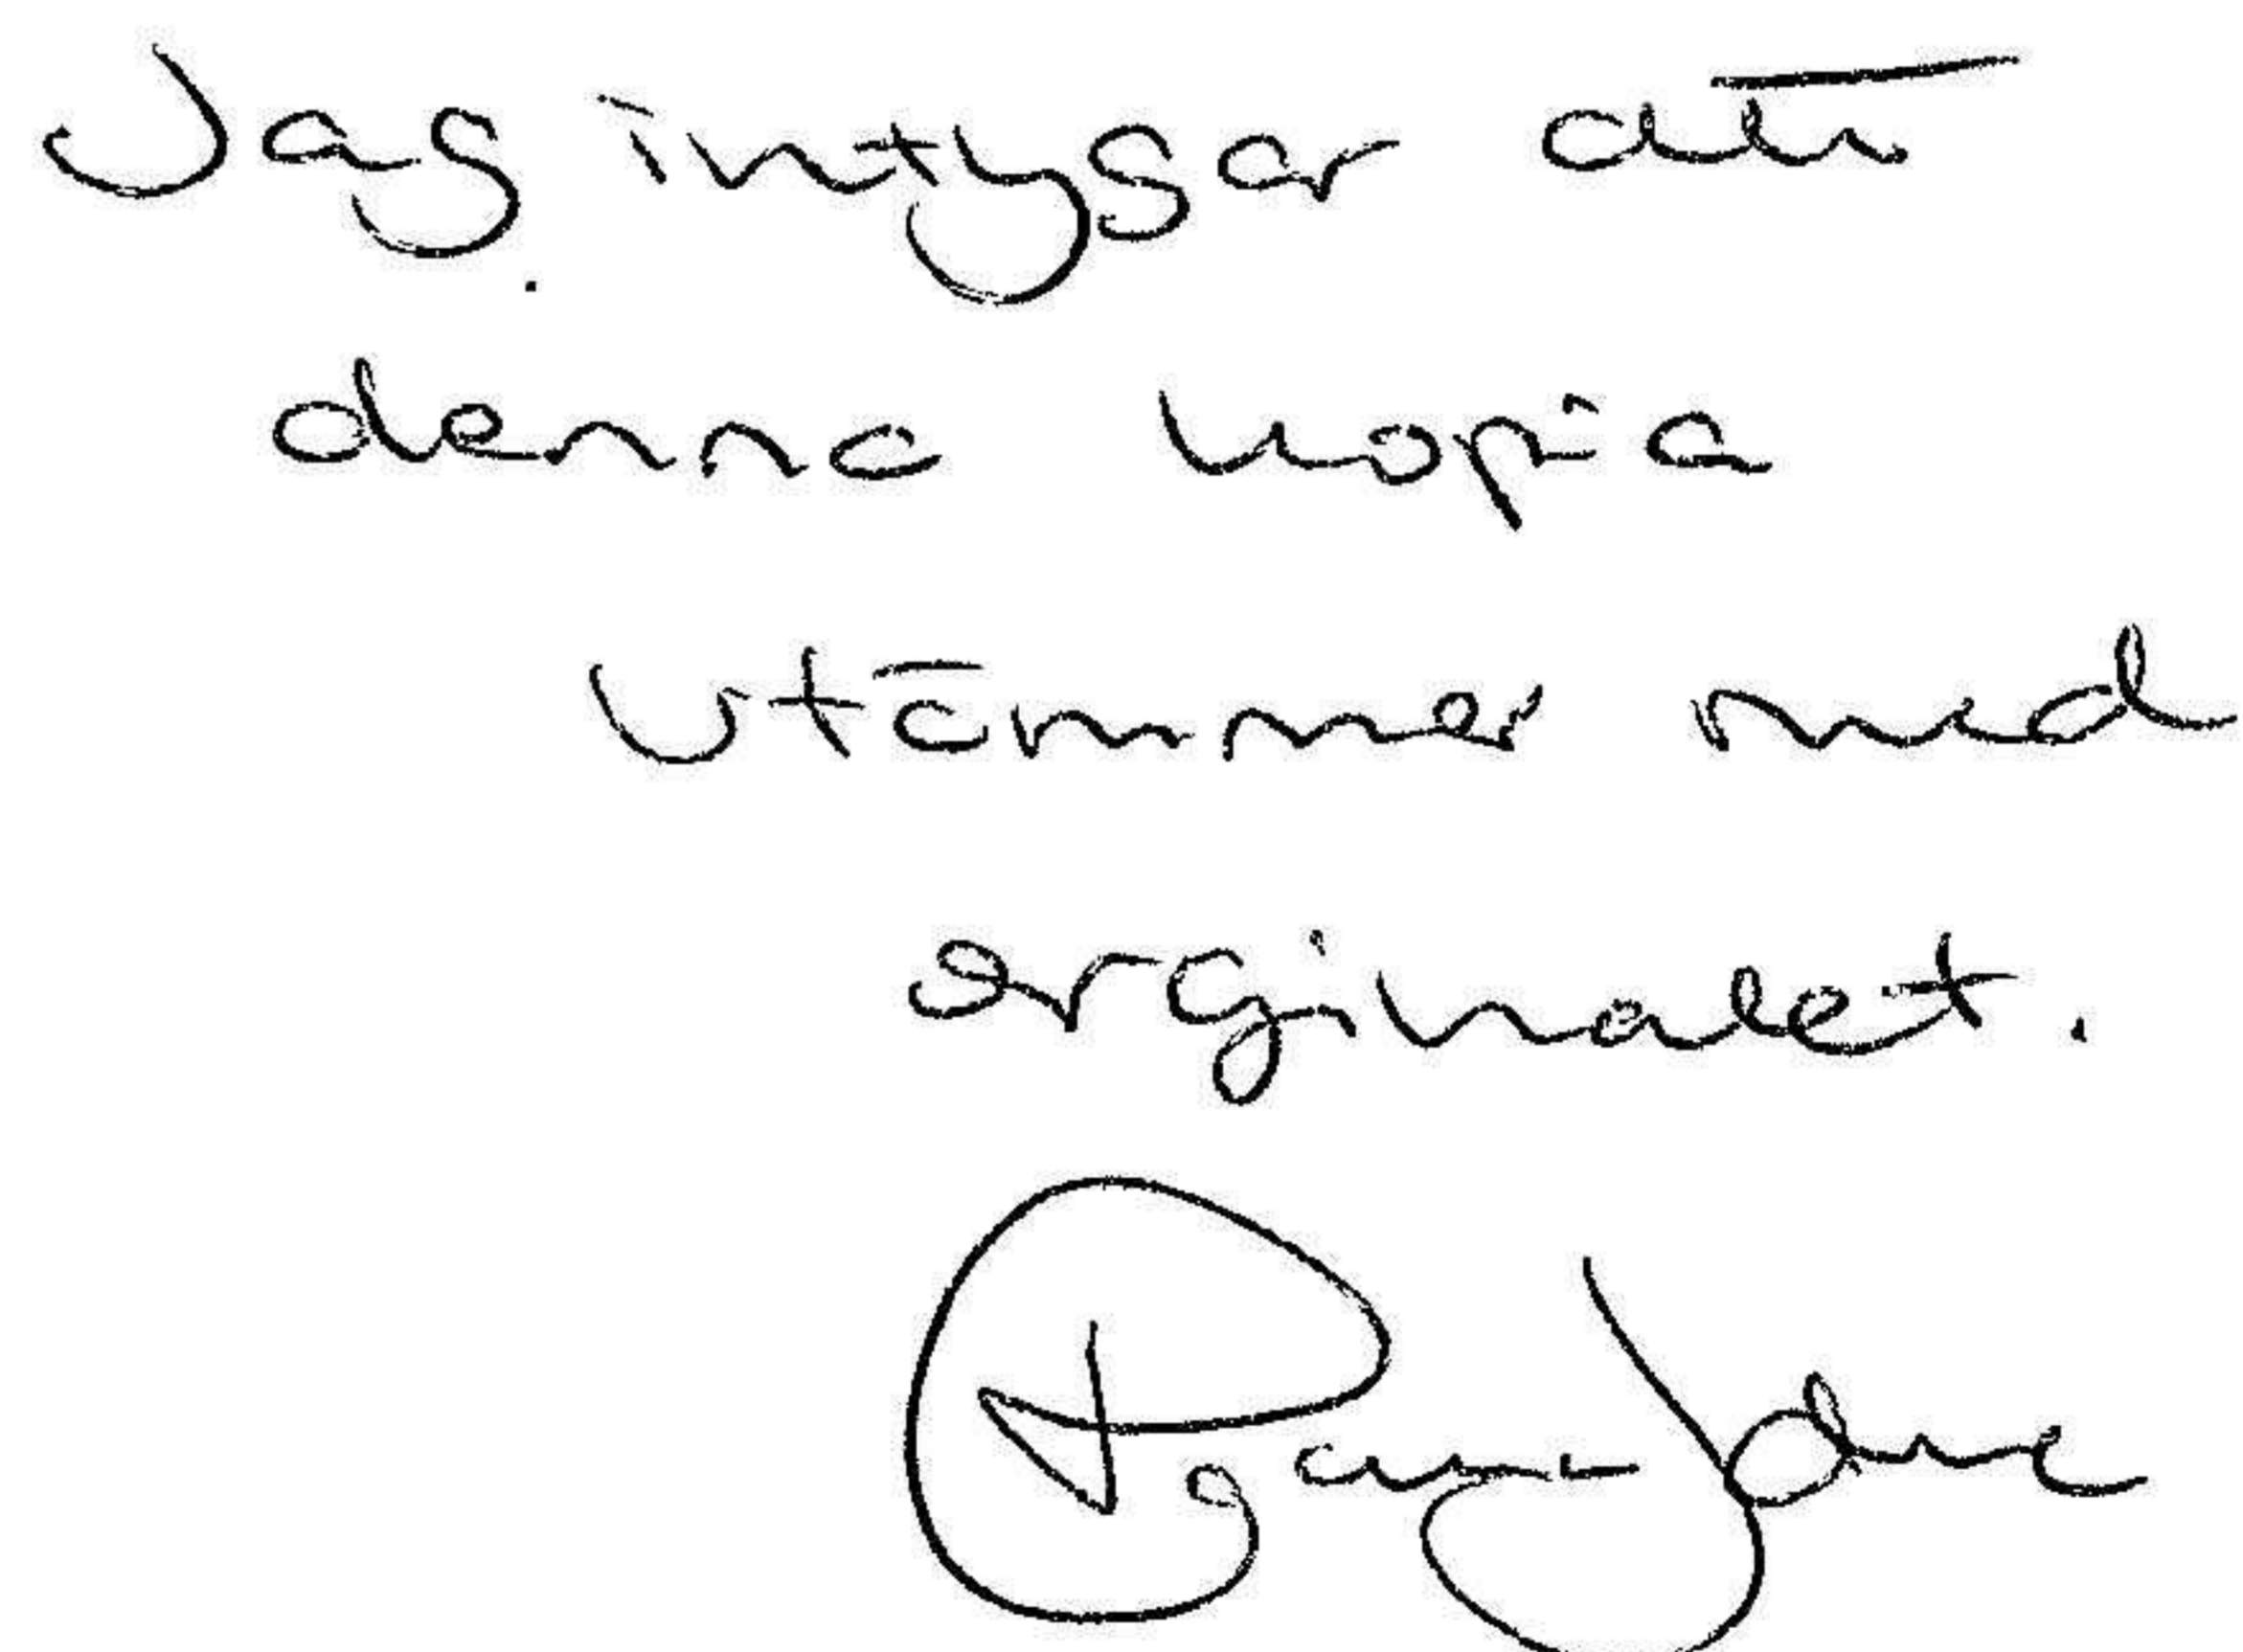 Jag intygar att
denna kopia
utämmer med
orginalet.